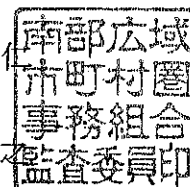 南部広域
市町村圏
事務組合
監査委員印